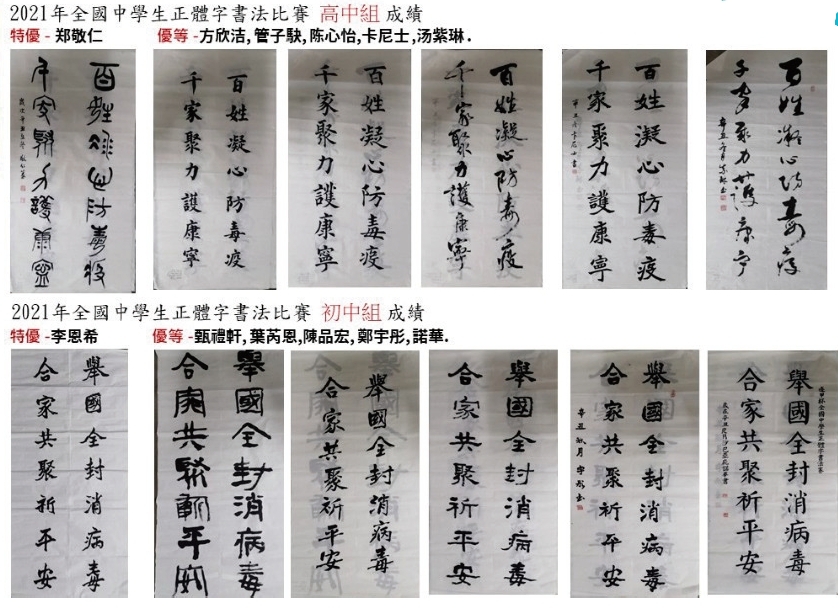 2021年全國中學生正體字書法比賽 高中組 成績
特優 - 郑敬仁
優等 -方欣洁,管子駃,陈心怡,卡尼士,汤紫琳.
百姓凝心防毒疫
千家聚力護康寧
百姓凝心防毒疫
千家聚力護康寧
百姓凝心防毒疫
千家聚力護康寧
百姓凝心防毒疫
千家聚力護康寧
百姓凝心防毒疫
千家聚力護康寧
百姓凝心防毒疫
千家聚力護康宁
2021年全國中學生正體字書法比賽 初中組 成績
特優 -李恩希
優等 -甄禮軒,葉芮恩,陳品宏,鄭宇彤,諾華.
舉國全封消病毒
合家共聚祈平安
舉國全封消病毒
合家共聚祈平安
舉國全封消病毒
合家共聚祈平安
舉國全封消病毒
合家共聚祈平安
舉國全封消病毒
合家共聚祈平安
舉國全封消病毒
合家共聚祈平安